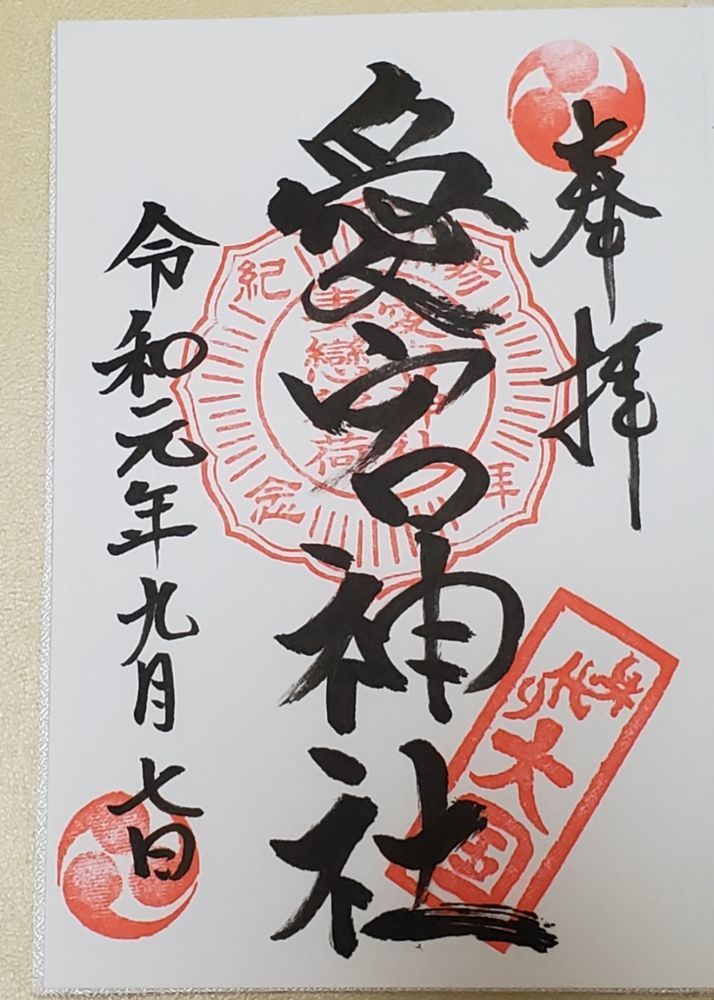 奉拝
愛宕神社
令和元年九月七日
參拝紀念
大国